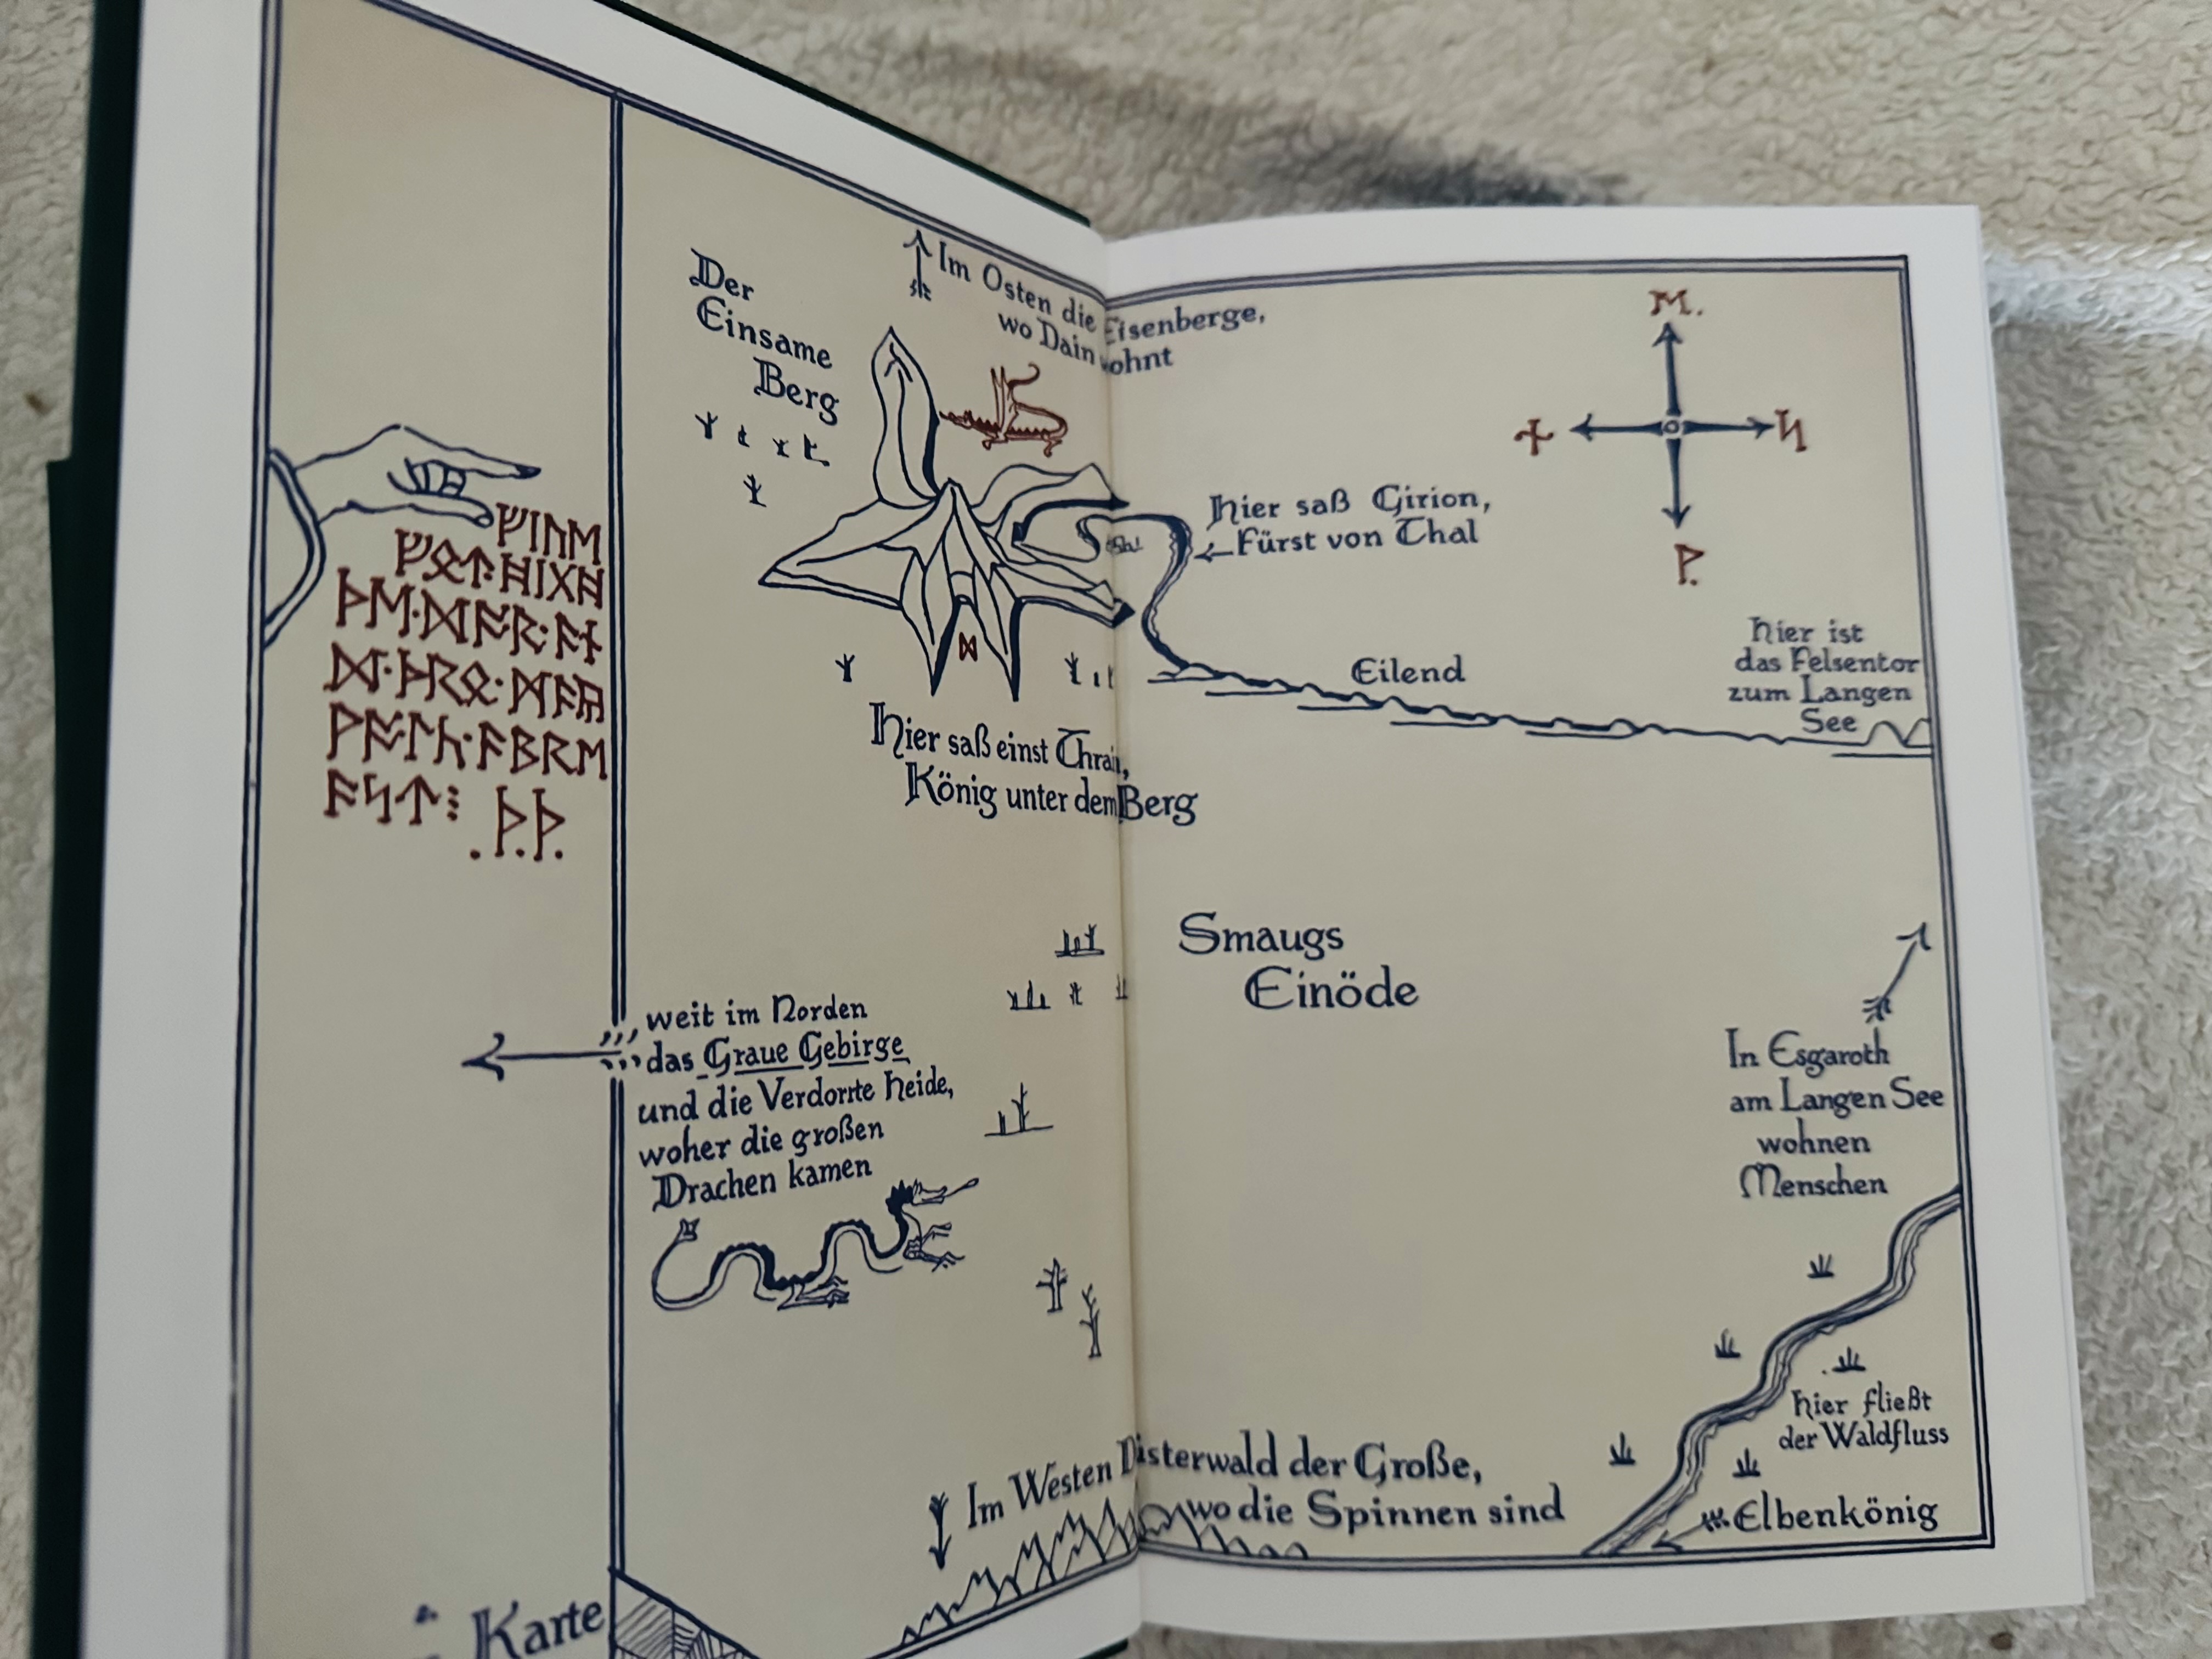 Der
Einsame
Berg
Im Osten die Eisenberge,
wo Dain wohnt
ᚠᛁᚢᛖ
ᚠᛟᛏ·ᚻᛁᚷᚻ
ᚦᛖ·ᛞᚩᚱ·ᚪᚾ
ᛞ·ᚦᚱᛟ·ᛗᚪᚣ
ᚹᚪᛚᚳ·ᚪᛒᚱᛖ
ᚪᛋᛏ⁝
.ᚦ.ᚦ.
ᛞ
Thal
Hier saß Girion,
Fürst von Thal
ᛖ.
ᚾ
ᛋ
ᚹ.
Eilend
Hier ist
das Felsentor
zum Langen
See
Hier saß einst Thrain,
König unter dem Berg
Smaugs
Einöde
weit im Norden
das Graue Gebirge
und die Verdorrte Heide,
woher die großen
Drachen kamen
In Esgaroth
am Langen See
wohnen
Menschen
Hier fließt
der Waldfluss
Im Westen Düsterwald der Große,
wo die Spinnen sind
Elbenkönig
Karte